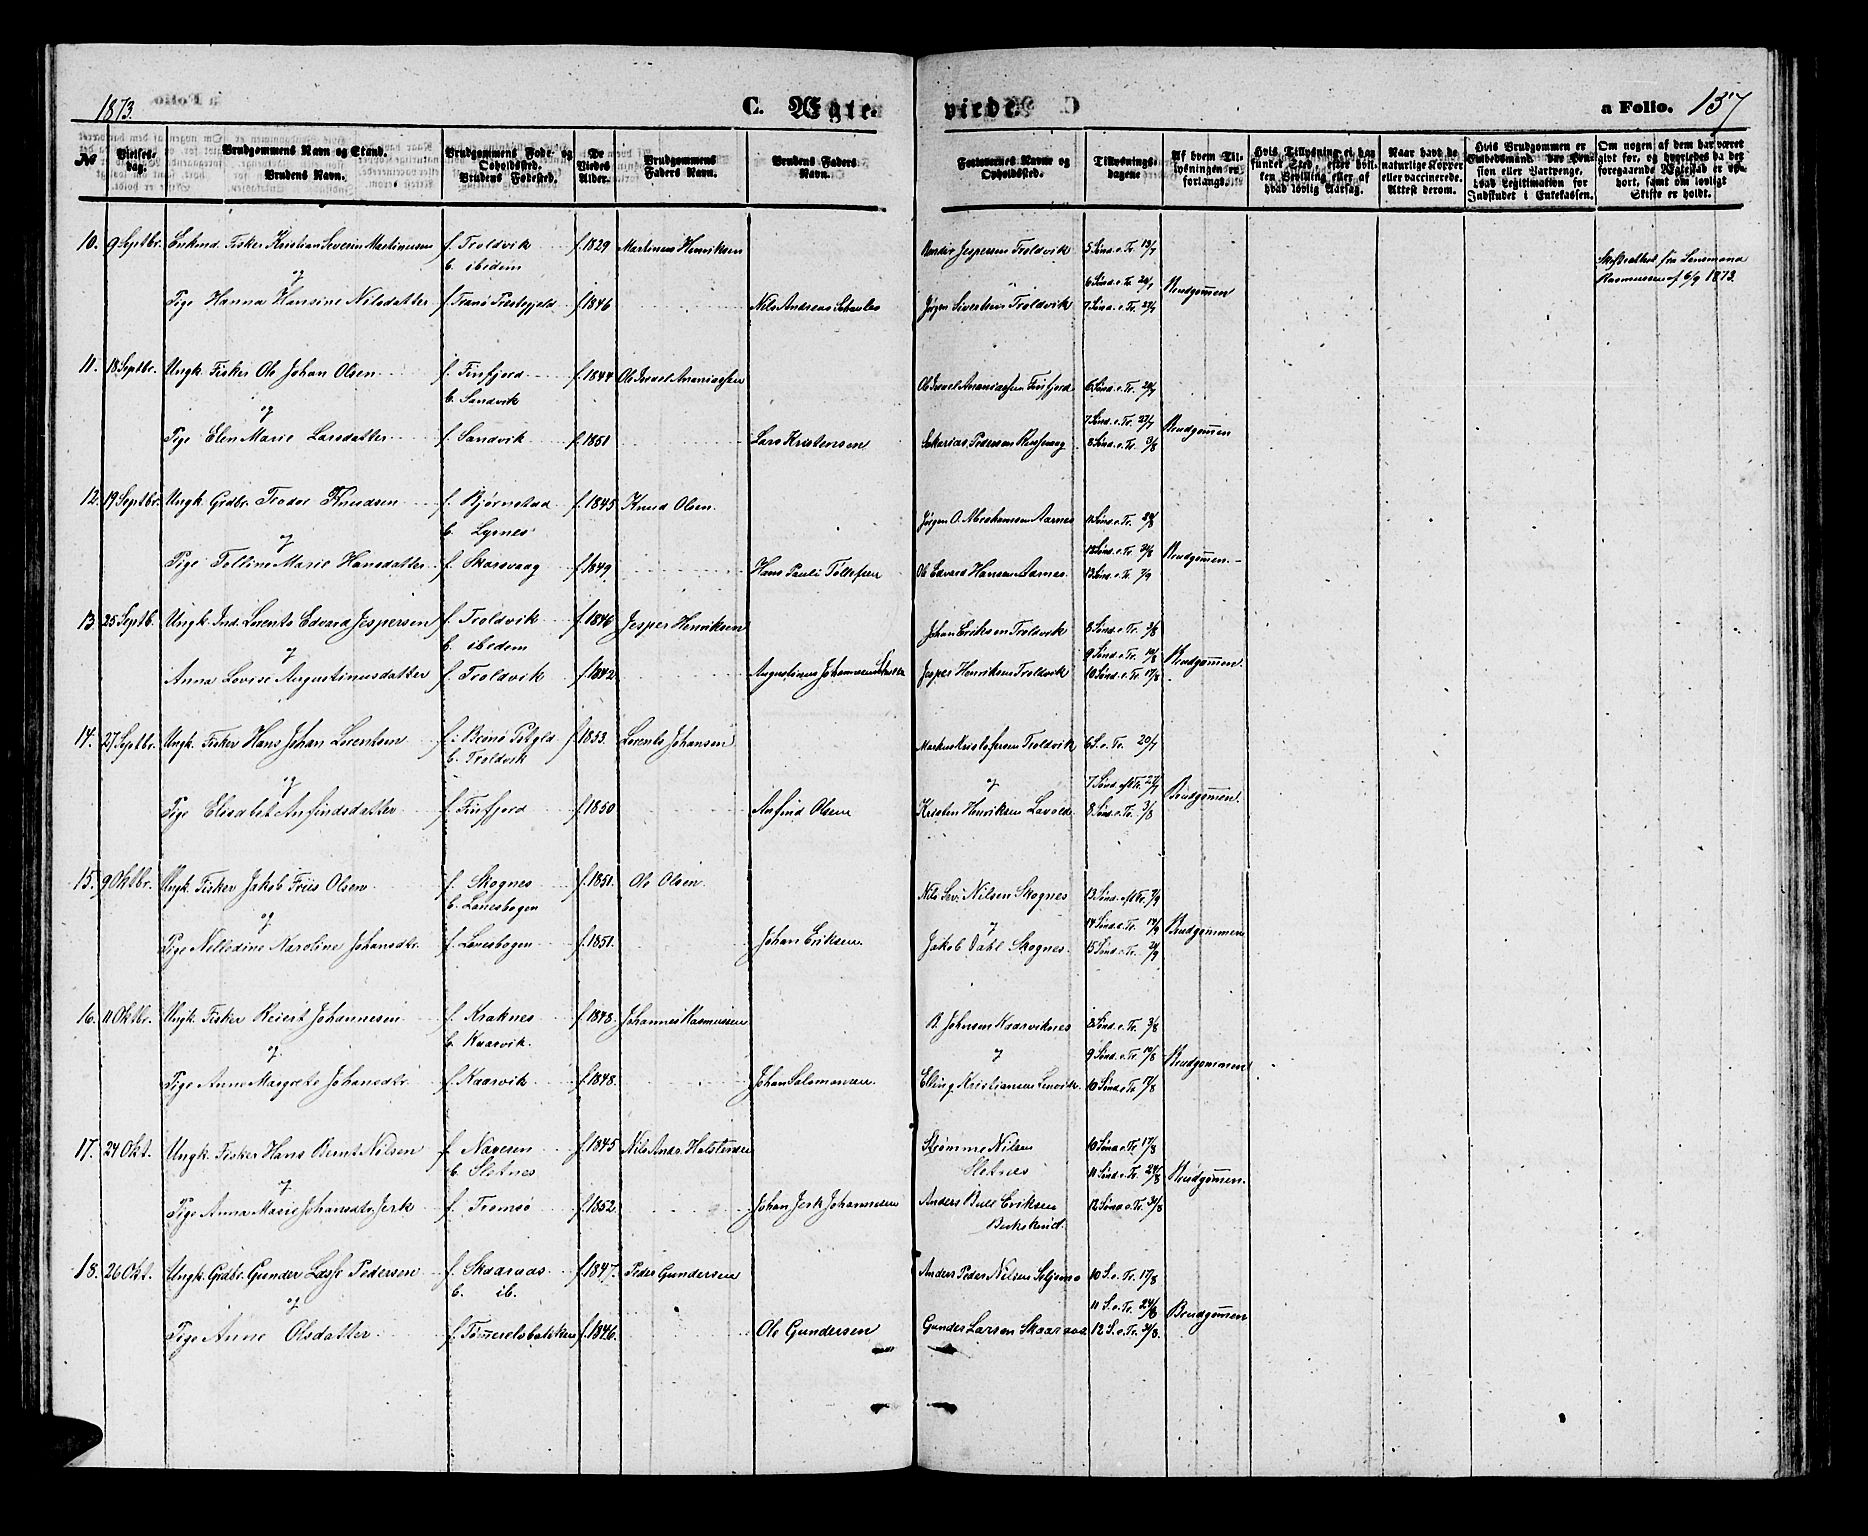 1873.
C. Ægte-
viede.
a Folio. 137
No
Vielses-
dag.
Brudgommens Navn og Stand.
Brudens Navn.
Brudgommens Føde- og
Opholdssted.
Brudens Fødested.
De
Viedes
Alder.
Brudgommens
Faders Navn.
Brudens Faders
Navn.
Forlovernes Navne og
Opholdssted.
Tillysnings-
dagene
Af hvem Til-
lysningen er
forlangt.
Hvis Tillysning ei har
funket Sted, efter hvil-
ken Bevilling eller af
hvad lovlig Aarsag.
Naar havt de
naturlige Kopper
eller vaccinerede.
Attest derom.
Hvis Brudgommen er
Embedsmand, har Pen-
sion eller Vartpenge,
hvad Legitimation for
Indskudet i Enkekassen.
Om nogen af dem har været
givt før, og hvorledes da det
foregaaende Ægteskab er op-
hørt, samt om lovligt
Skifte er holdt.
10. 9 Septbr. Enkmd. Fisker Kristian Severin Martinusen f. Troldvik f. 1829 Martinus Henriksen Jespersen Troldvik 5 Sønd. e. Tr. 13/7
b. ibidem Skifteattest fra Lensmand
og 6 Sønd. e. Tr. 20/7 Brudgommen Rasmussen af 6/9 1873.
Pige Hanna Hansine Nilsdatter f. Tranø Præstegjeld f. 1846 Nils Andreas Jørgen Sivertsen Troldvik 7 Sønd. e. Tr. 27/7
11. 18 Septbr. Ungk. Fisker Ole Johan Olsen f. Finfjord f. 1844 Ole Israel Ananiassen Ole Israel Ananiassen Finfjord 6 Sønd. e. Tr. 20/7
b. Sandvik
og 7 Sønd. e. Tr. 27/7 Brudgommen
Pige Elen Marie Larsdatter f. Sandvik f. 1851 Lars Kristensen Sakarias Pedersen 8 Sønd. e. Tr. 3/8
12. 19 Septbr. Ungk. Grdbr. Teodor Knudsen f. Bjørnstad f. 1845 Knud Olsen Jørgen O. Abrahamsen Aarnes 11 Sønd. e. Tr. 24/8
b. Lysnes
og 12 Sønd. e. Tr. 31/8 Brudgommen
Pige Tolline Marie Hansdatter f. Skarsvaag f. 1849 Hans Pauli Tollefsen Ole Edvard Hansen Aarnes 13 Sønd. e. Tr. 7/9
13. 25 Septb. Ungk. Ind. Lorents Edvard Jespersen f. Troldvik f. 1846 Jesper Henriksen Johan Eriksen Troldvik 8 Sønd. e. Tr. 3/8
b. ibidem
og 9 Sønd. e. Tr. 10/8 Brudgommen
Anna Lovise Augustinusdatter f. Troldvik f. 1842 Augustinus Johannesen Jesper Henriksen Troldvik 10 Sønd. e. Tr. 17/8
14. 27 Septbr. Ungk. Fisker Hans Johan Lorentsen f. i Prstgld f. 1853. Lorents Johansen Markus Kristofersen Troldvik 6 S. e. Tr. 20/7
b. Troldvik
og og 7 Sønd. eft Tr. 27/7 Brudgommen.
Pige Elisabet Anfindsdatter f. Finfjord f. 1850 Anfind Olsen Kristen Henriksen 8 Sønd. e. Tr. 3/8
15. 9 Oktbr. Ungk. Fisker Jakob Friis Olsen f. Skognes f. 1851. Ole Olsen Nils Sev. Nilsen Skognes 13 Sønd. eft Tr. 7/9
b. Lanesbogen
og og 14 Sønd. e. Tr. 14/9 Brudgommen
Pige Karoline Johansdtr. f. Lanesbogen f. 1851. Johan Eriksen Jakob Dahl Skognes 15 Sønd. e. Tr. 21/9
16. 11 Oktbr. Ungk. Fisker Reiert Johannesen f. Kraknes f. 1848. Johannes Rasmussen B. Johnsen Kaarviknes 8 Sønd. e. Tr. 3/8
b. Kaarvik.
og og 9 Sønd. e. Tr. 10/8 Brudgommen
Pige Anne Margrete Johansdtr. f. Kaarvik f. 1848. Johan Salomonsen Elling Kristiansen Lenvik 10 Sønd. e. Tr. 17/8
17. 24 Okt. Ungk. Fisker Hans Bernt Nilsen f. Navaren f. 1845 Nils Andr. Holstensen Strømme Nilsen 10 Sønd. e. Tr. 17/8
b. Sletnes Sletnes
og 11 Sønd. e. Tr. 24/8 Brudgommen.
Pige Anna Marie Johansdtr. Jerk f. Tromsø f. 1852. Johan Jerk Johannesen Anders Bull Eriksen 12 Sønd. e. Tr. 31/8
18. 26 Okt. Ungk. Grdbr. Gunder Lasse Pedersen f. Skaaraas f. 1847. Peder Gundersen Anders Peder Nilsen 10 S. e. Tr. 17/8
b. ib.
og 11 S. e. Tr. 24/8 Brudgommen
Pige Anne Olsdatter f. Tømmerelsbakken f. 1846. Ole Gundersen Gunder Larsen Skaaraas 12 S. e. Tr. 31/8.